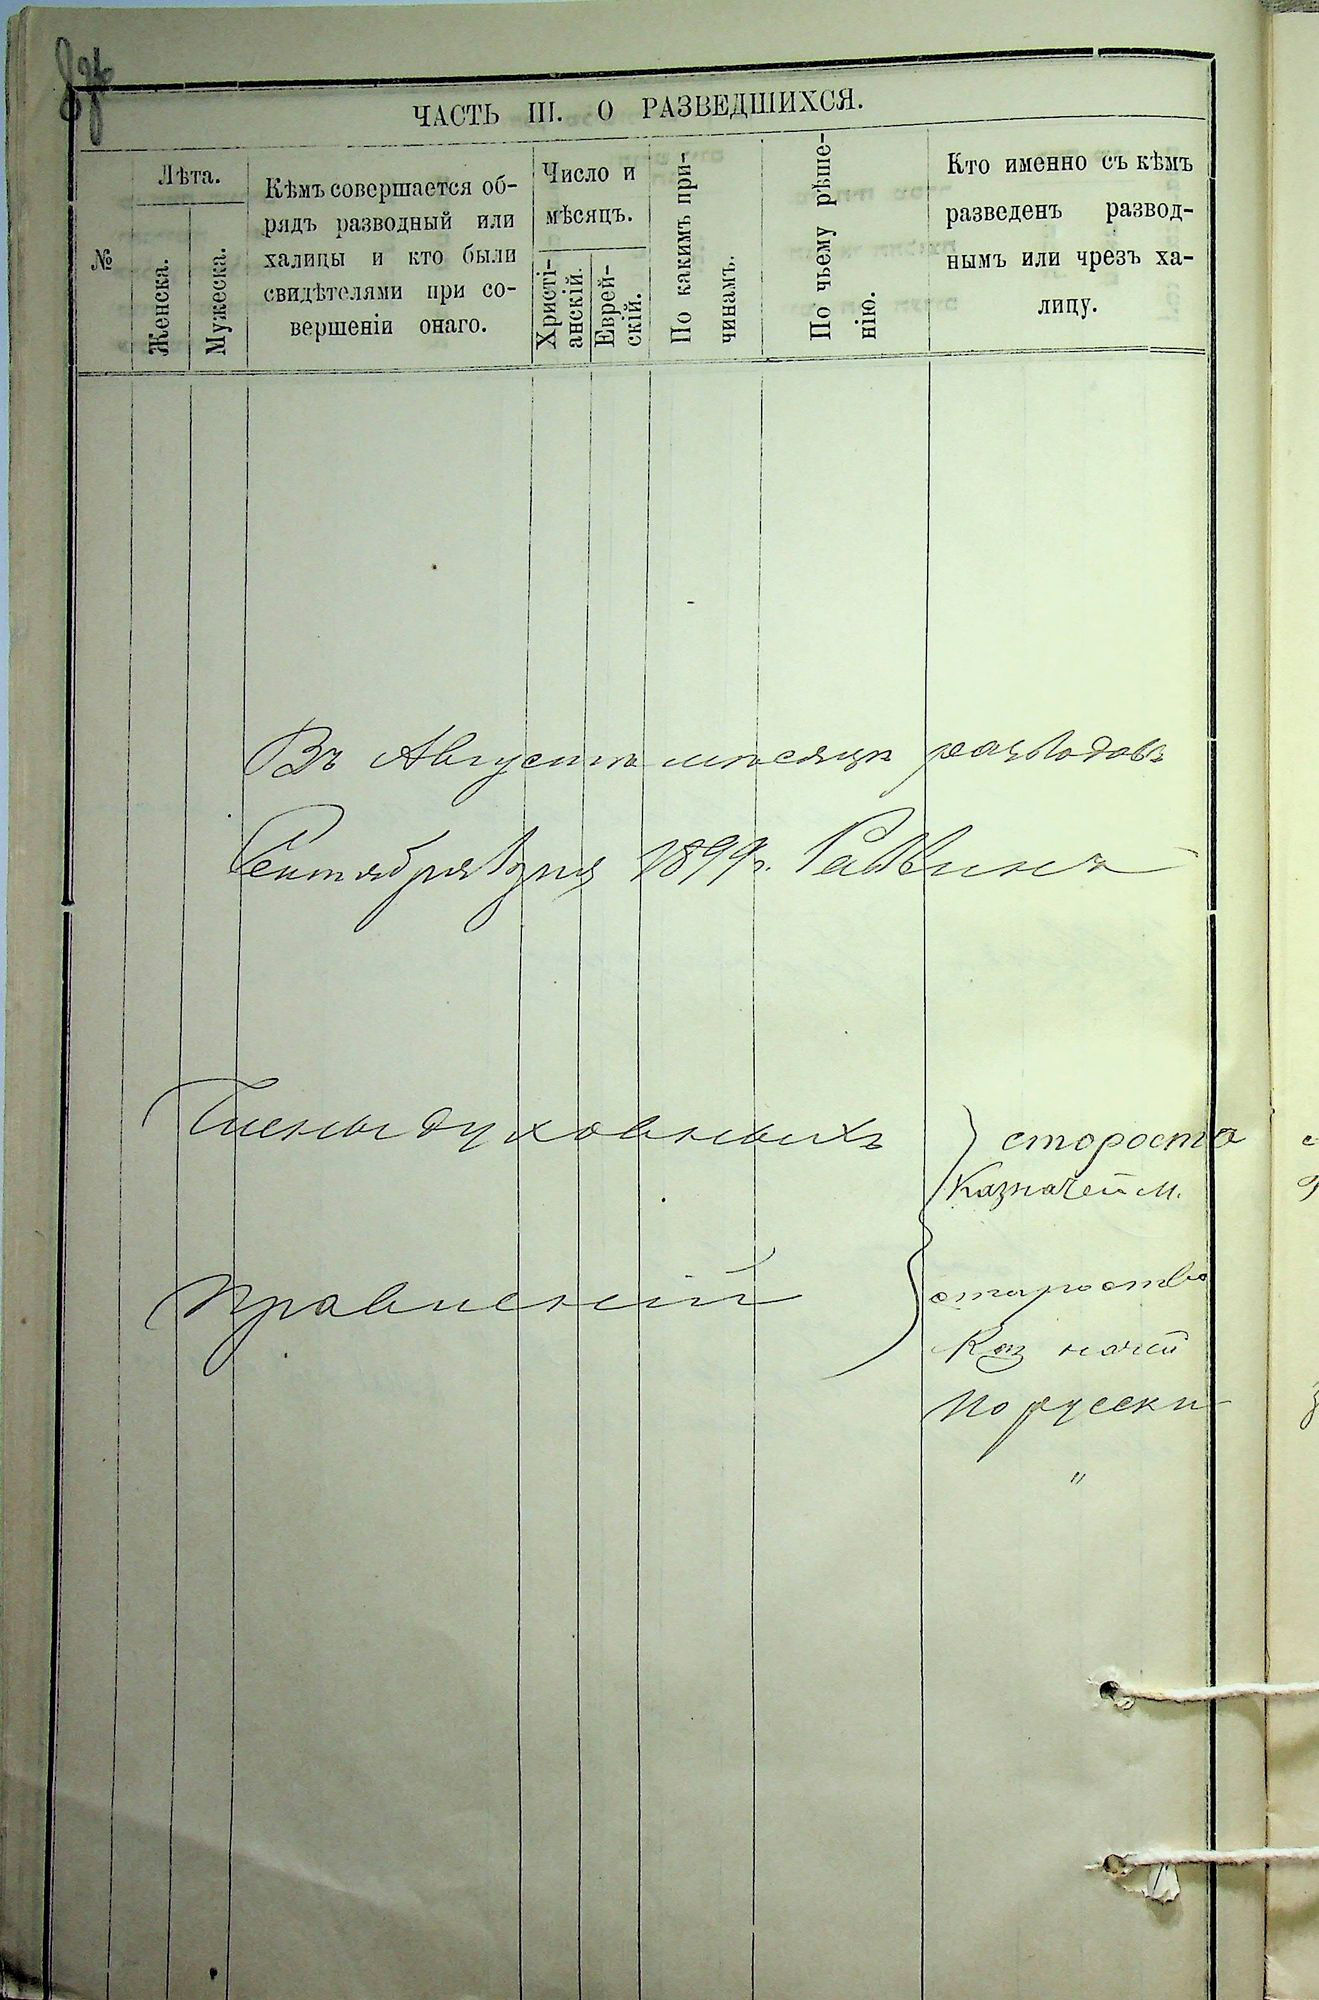 ЧАСТЬ III. О РАЗВЕДШИХСЯ.
№
Лѣта.
Женска.
Мужеска.
Кѣмъ совершается об-
рядъ разводный или
халицы и кто были
свидѣтелями при со-
вершеніи онаго.
Число и
мѣсяцъ.
Христі-
анскій.
Еврей-
скій.
По какимъ при-
чинамъ.
По чьему рѣше-
нію.
Кто именно съ кѣмъ
разведенъ развод-
нымъ или чрезъ ха-
лицу.
Въ Августѣ мѣсяцѣ разводовъ
Сентября 1 дня 1899 г. Раввинъ
Члены духовныхъ
староста
Казначей м.
Правленій
староства
Каз начей
По русски
"